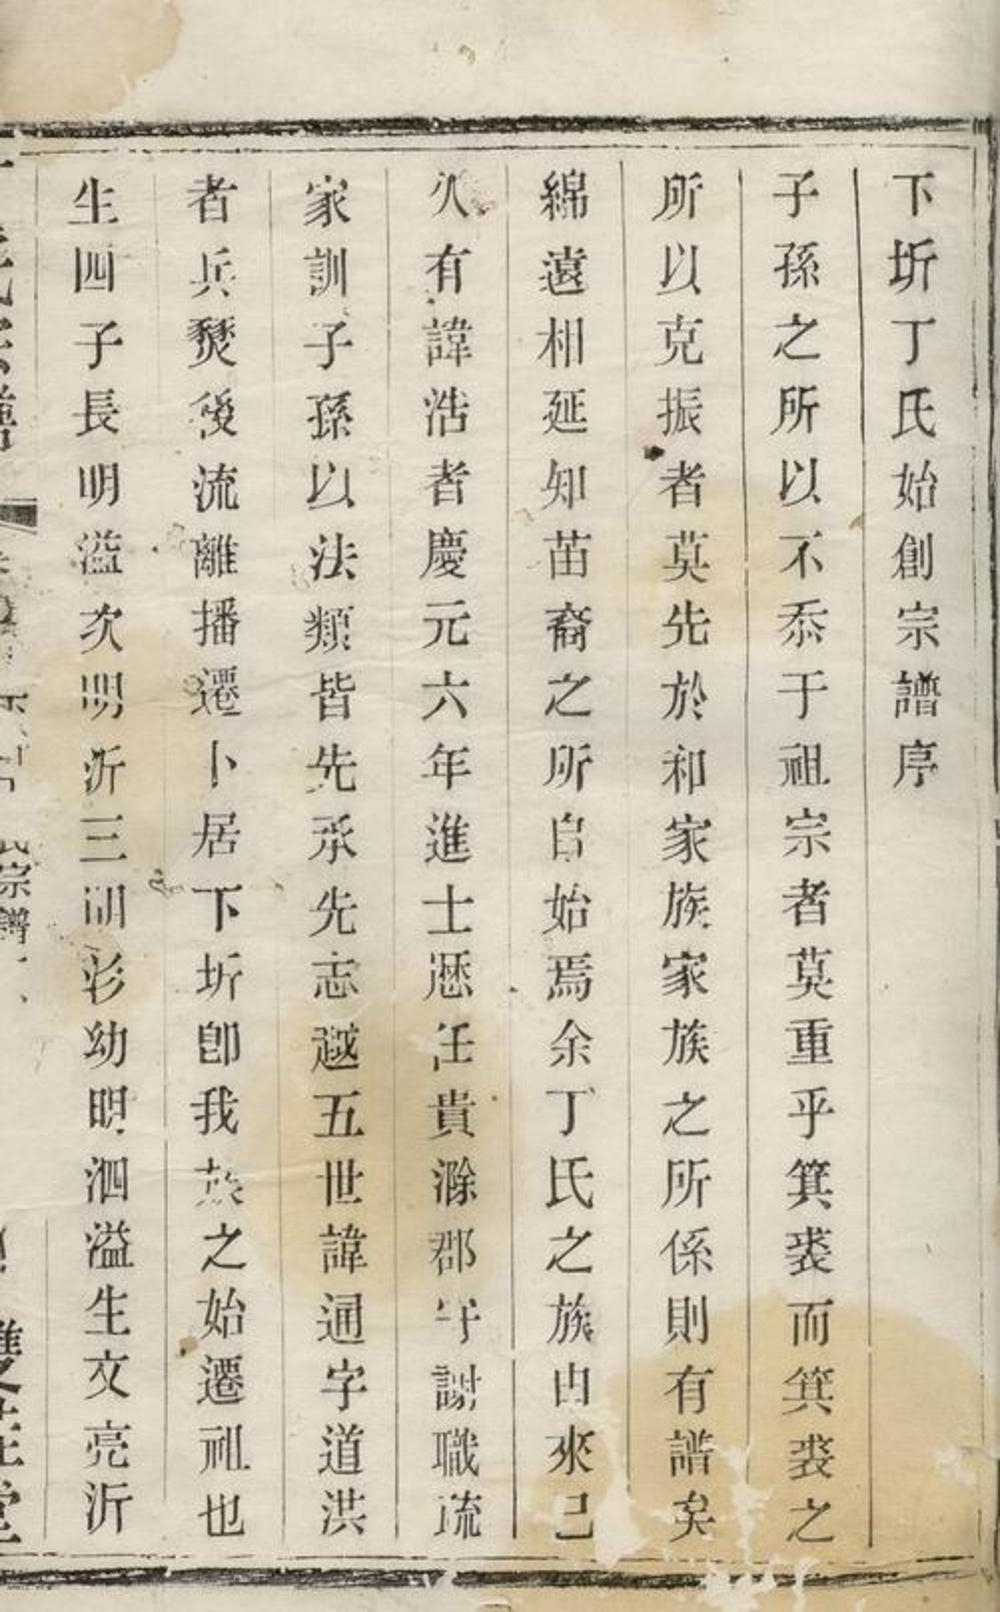 下圻丁氏始創宗譜序
子孫之所以不忝于祖宗者莫重乎箕裘而箕裘之
所以克振者莫先於和家族家族之所係則有譜矣
綿遠相延知苗裔之所自始焉余丁氏之族由來已
久有諱浩者慶元六年進士歷任貴滁郡守謝職流
家訓子孫以法類皆先承先志越五世諱通字道洪
者兵燹後流離播遷卜居下圻卽我族之始遷祖也
生四子長明溢次明沂三明彩幼明泗溢生文亮沂
氏宗譜
雙桂堂